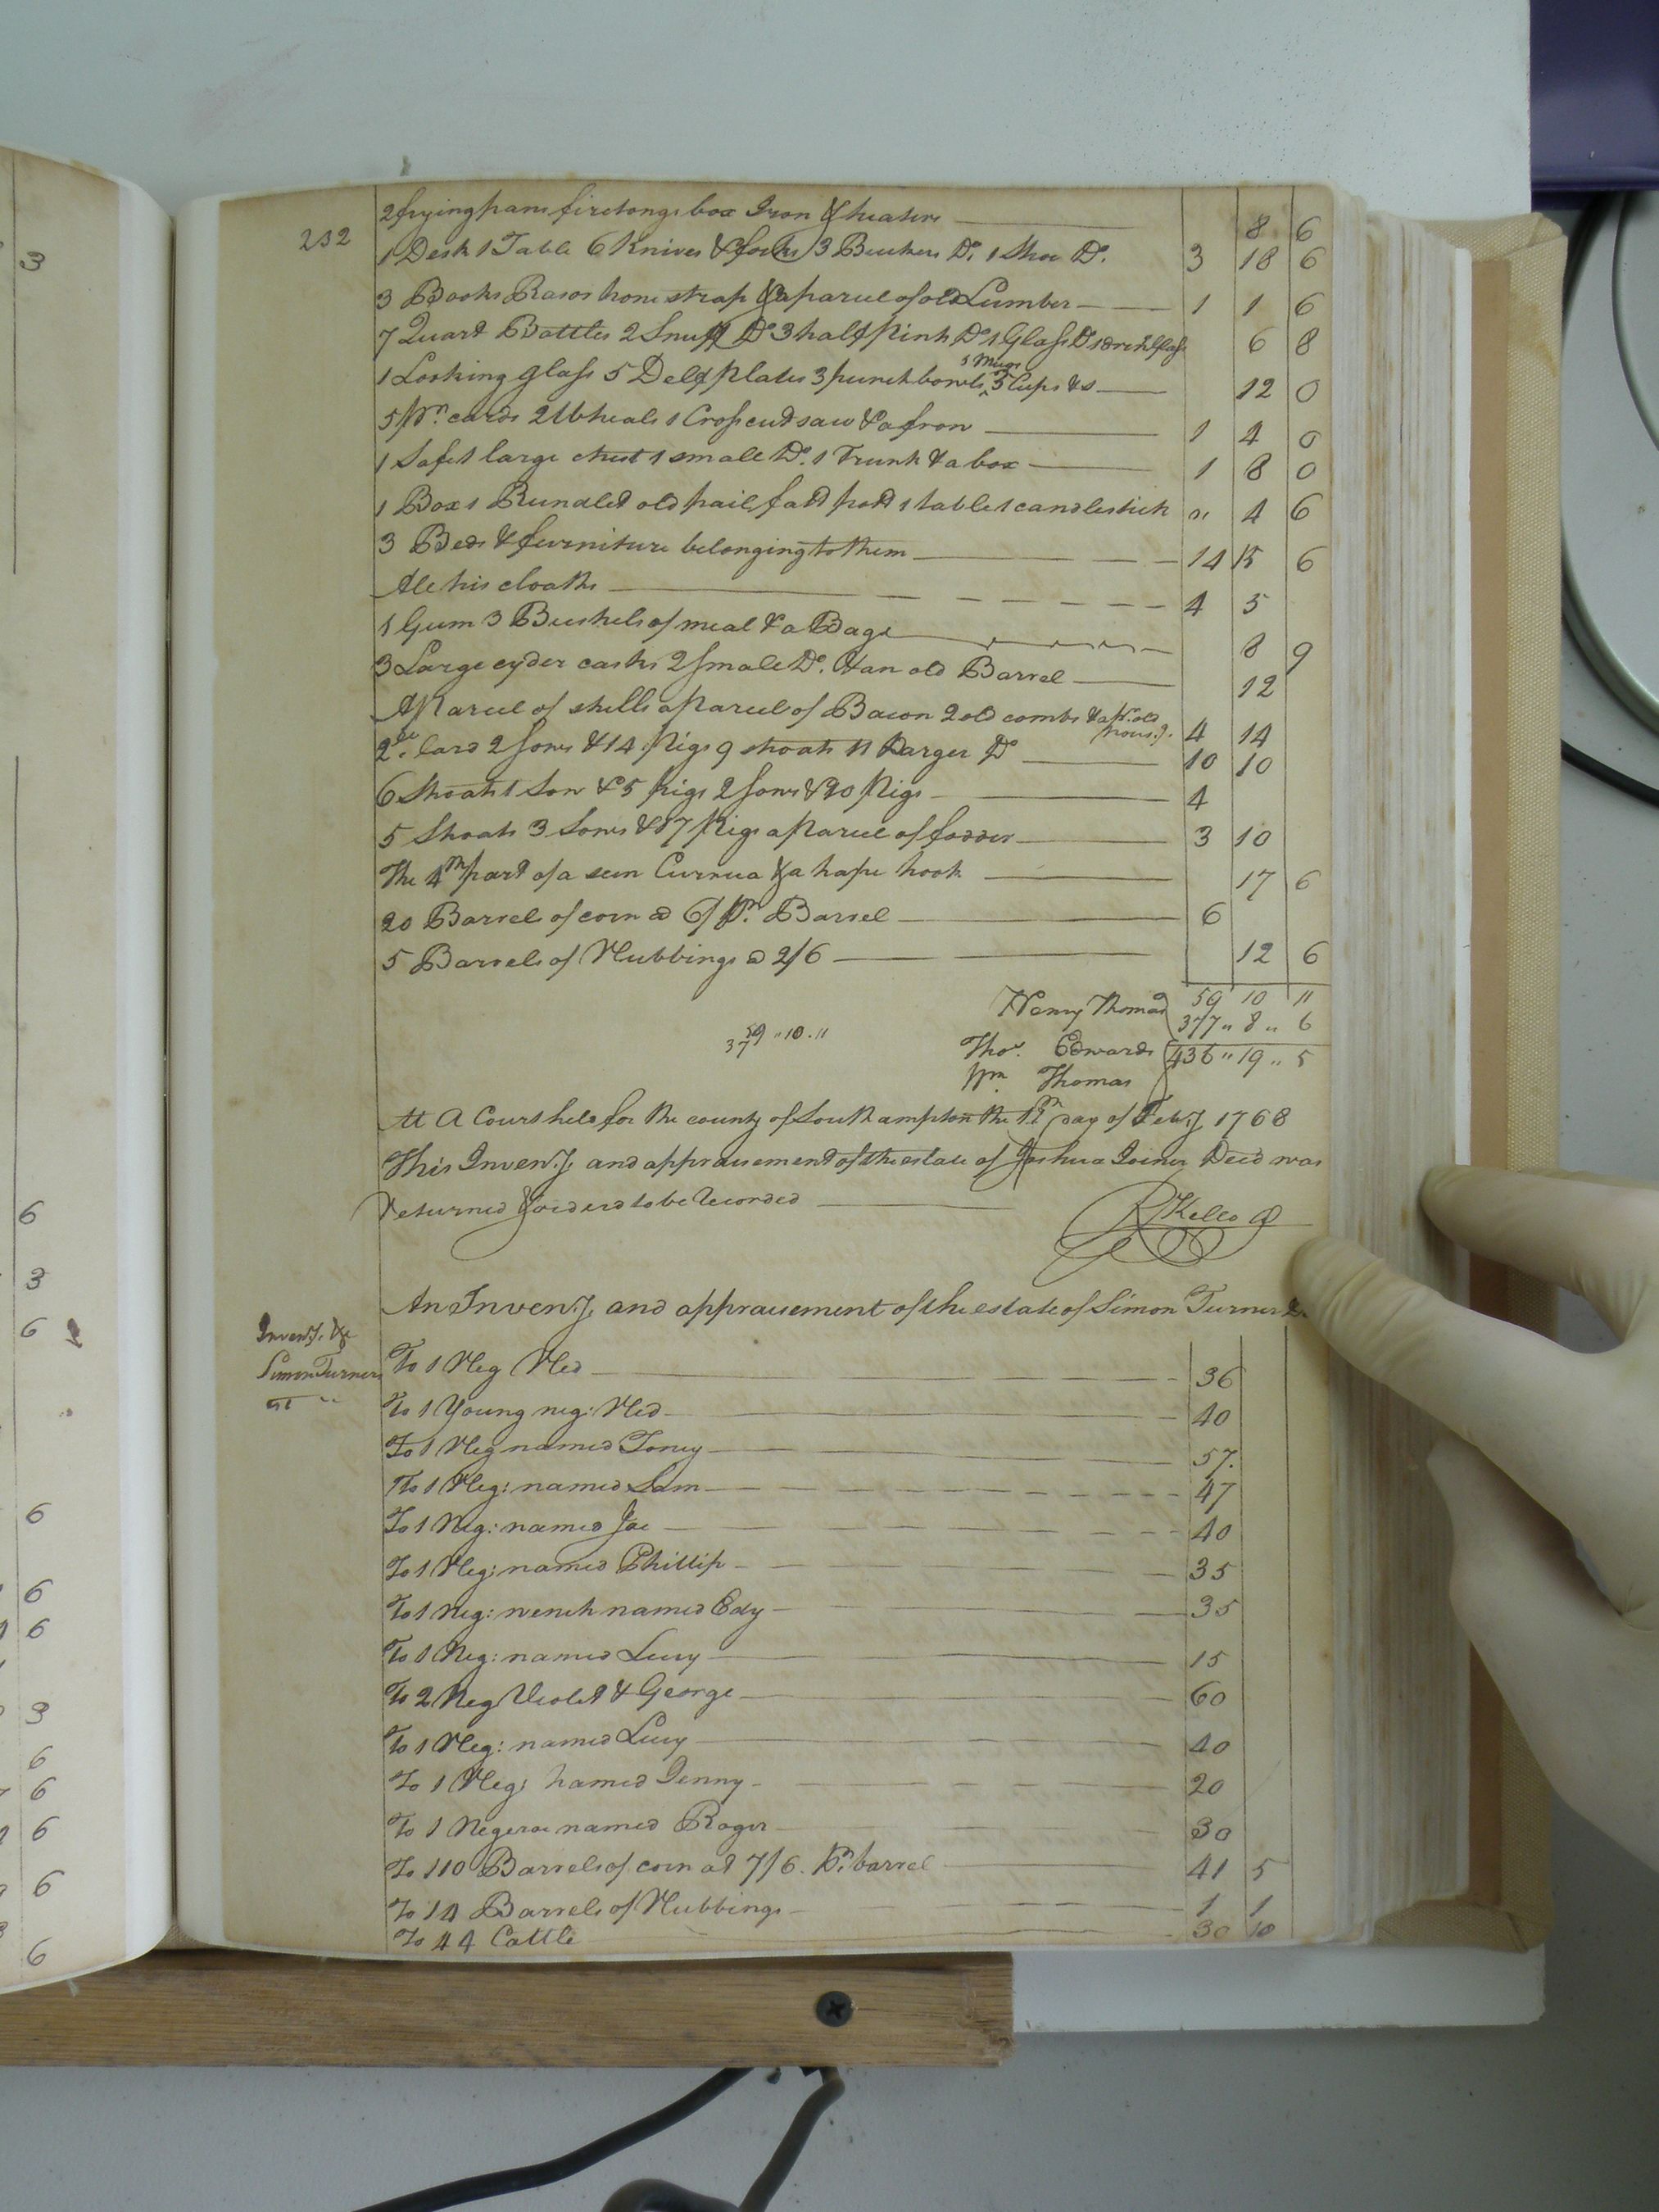 232
2 frying pans fire tongs box Iron & heaters 8 6
1 Desk 1 Table 6 Knives & forks 3 Buchers Do. 1 Shoe Do. 3 18 6
3 Books Rasor hone strap & a parcel of old Lumber 1 1 6
7 Quart Bottles 2 Snuff Do 3 half pint Do 1 Glass Do 1 6 8
1 Looking glass 5 Delf plates 3 punch bowls, 3 Mugs 5 Cups &c 12 0
5 pr. cards 2 Wheals 1 Cross cut saw & a frow 1 4 0
1 Safe 1 large chest 1 small Do. 1 Trunk & a box 1 8 0
1 Box 1 Rundlet old pail, fatt pott 1 table 1 candlestick 4 6
3 Beds & furniture belonging to them 14 15 6
All his cloaths 4 5
1 Gum 3 Bushels of meal & a Bage 8 9
3 Large cyder casks 2 small Do. & an old Barrel 12
A Parcel of a Parcel of Bacon 2 old combs & a pr. old 4 14
Card 2 Sows & 14 Pigs 9 shoats 11 Larger Do 10 10
6 Shoats 1 Sow & 5 Pigs 2 Sows & 20 Pigs 4
5 Shoats 3 Sows & 17 Pigs a Parcel of fodder 3 10
The 4th part of a & a hook 17 6
20 Barrels of corn @ 6/ pr. Barrel 6
5 Barrels of Nubbings @ 2/6 12 6
59 10 11
Henry Thomas 377 " 8 " 6
59 " 10 . 11
37
Thos. Edwards 436 " 19 " 5
Wm. Thomas
At A Court held for the county of Southampton the day of Feby. 1768
This Inventy. and appraisement of the estate of Joshua Joiner Decd was
returned & ordered to be Recorded
R Kello
An Inventy. and appraisement of the estate of Simon Turner
Inventy. &c
Simon Turners
To 1 Neg Ned 36
To 1 Young neg: Ned 40
To 1 Neg named Toney 57.
To 1 Neg: named Sam 47
To 1 Neg: named Joe 40
To 1 Neg: named Phillip 35
To 1 neg: wench named Edy 35
To 1 Neg: named Lucy 15
To 2 Neg Violet & George 60
To 1 Neg: named Lucy 40
To 1 Neg: named Jenny 20
To 1 Negeroe named Roger 30
To 110 Barrels of corn at 7/6. Pr. barrel 41 5
To 14 Barrels of Nubbings 1 1
To 44 Cattle 30 10
3
6
3
6
6
6
6
3
6
6
6
6
6